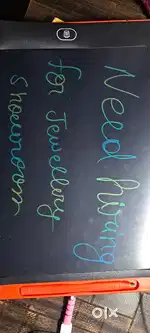 Need hiring
for Jewellery
Showroom
olx